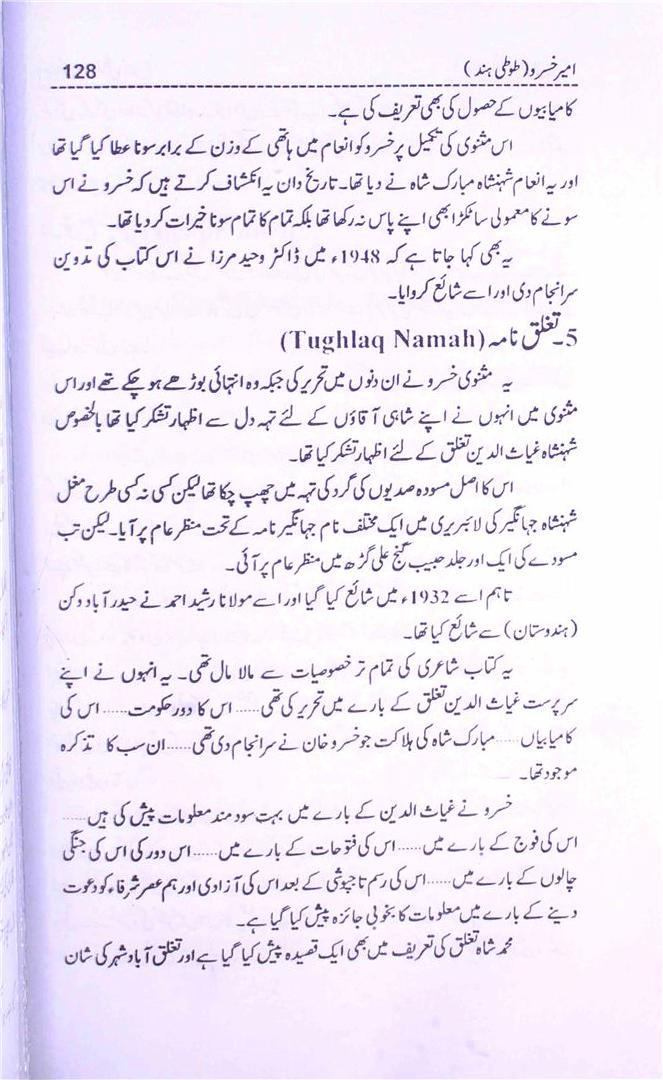 امیر خسرو (طوطی ہند) 128
کامیابیوں کے حصول کی بھی تعریف کی ہے۔
اس مثنوی کی تکمیل پر خسرو کو انعام میں ہاتھی کے وزن کے برابر سونا عطا کیا گیا تھا
اور یہ انعام شہنشاہ مبارک شاہ نے دیا تھا۔ تاریخ دان یہ انکشاف کرتے ہیں کہ خسرو نے اس
سونے کا معمولی سا ٹکڑا بھی اپنے پاس نہ رکھا تھا بلکہ تمام کا تمام سونا خیرات کر دیا تھا۔
یہ بھی کہا جاتا ہے کہ 1948ء میں ڈاکٹر وحید مرزا نے اس کتاب کی تدوین
سرانجام دی اور اسے شائع کروایا۔
5۔ تغلق نامہ (Tughlaq Namah)
یہ مثنوی خسرو نے ان دنوں میں تحریر کی جبکہ وہ انتہائی بوڑھے ہو چکے تھے اور اس
مثنوی میں انہوں نے اپنے شاہی آقاؤں کے لئے تہہ دل سے اظہار تشکر کیا تھا بالخصوص
شہنشاہ غیاث الدین تغلق کے لئے اظہار تشکر کیا تھا۔
اس کا اصل مسودہ صدیوں کی گرد کی تہہ میں چھپ چکا تھا لیکن کسی نہ کسی طرح مغل
شہنشاہ جہانگیر کی لائبریری میں ایک مختلف نام جہانگیر نامہ کے تحت منظر عام پر آیا۔ لیکن تب
مسودے کی ایک اور جلد حبیب گنج علی گڑھ میں منظر عام پر آئی۔
تاہم اسے 1932ء میں شائع کیا گیا اور اسے مولانا رشید احمد نے حیدر آباد دکن
(ہندوستان) سے شائع کیا تھا۔
یہ کتاب شاعری کی تمام تر خصوصیات سے مالا مال تھی۔ یہ انہوں نے اپنے
سرپرست غیاث الدین تغلق کے بارے میں تحریر کی تھی...... اس کا دور حکومت...... اس کی
کامیابیاں...... مبارک شاہ کی ہلاکت جو خسرو خان نے سرانجام دی تھی...... ان سب کا تذکرہ
موجود تھا۔
خسرو نے غیاث الدین کے بارے میں بہت سود مند معلومات پیش کی ہیں......
اس کی فوج کے بارے میں...... اس کی فتوحات کے بارے میں...... اس دور کی اس کی جنگی
چالوں کے بارے میں...... اس کی رسم تاجپوشی کے بعد اس کی آزادی اور ہم عصر شرفاء کو دعوت
دینے کے بارے میں معلومات کا بخوبی جائزہ پیش کیا گیا ہے۔
محمد شاہ تغلق کی تعریف میں بھی ایک قصیدہ پیش کیا گیا ہے اور تغلق آباد شہر کی شان